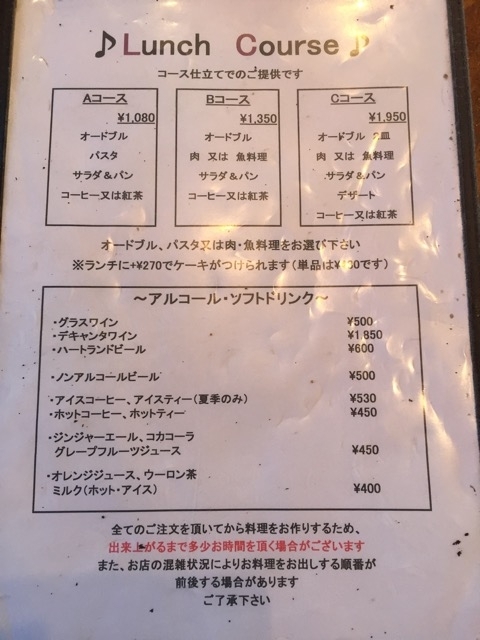 ♪Lunch Course♪
コース仕立てでのご提供です
Aコース
¥1,080
オードブル
パスタ
サラダ&パン
コーヒー又は紅茶
Bコース
¥1,350
オードブル
肉 又は 魚料理
サラダ&パン
コーヒー又は紅茶
Cコース
¥1,950
オードブル 2皿
肉 又は 魚料理
サラダ&パン
デザート
コーヒー又は紅茶
オードブル、パスタ又は肉・魚料理をお選び下さい
※ランチに+¥270でケーキがつけられます(単品は
～アルコール・ソフトドリンク～
・グラスワイン ¥500
・デキャンタワイン ¥1,850
・ハートランドビール ¥600
・ノンアルコールビール ¥500
・アイスコーヒー、アイスティー(夏季のみ) ¥530
・ホットコーヒー、ホットティー ¥450
・ジンジャーエール、コカコーラ
グレープフルーツジュース ¥450
・オレンジジュース、ウーロン茶
ミルク(ホット・アイス) ¥400
全てのご注文を頂いてから料理をお作りするため、
出来上がるまで多少お時間を頂く場合がございます
また、お店の混雑状況によりお料理をお出しする順番が
前後する場合があります
ご了承下さい